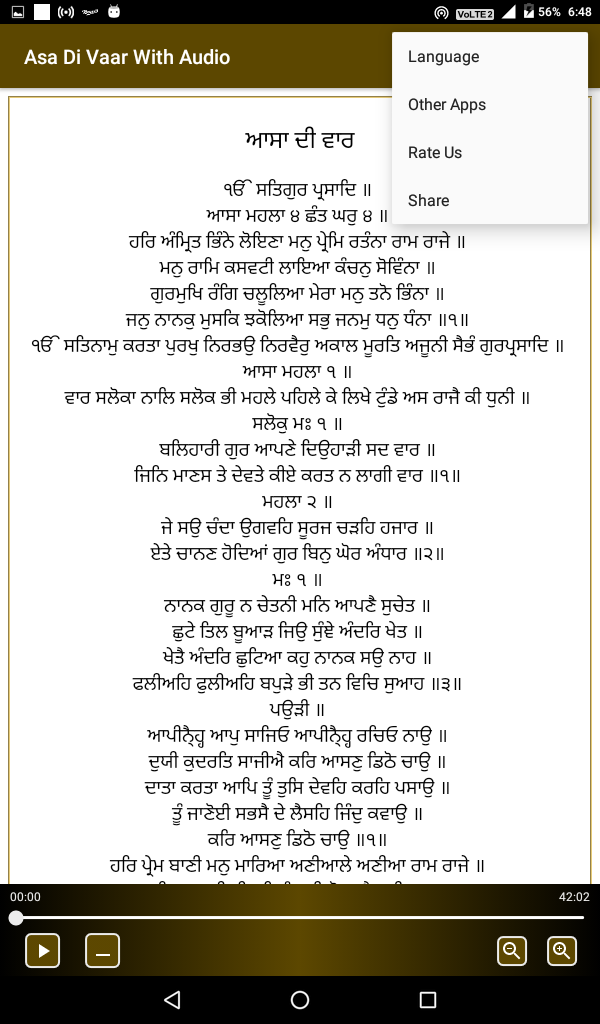 VoLTE2 56% 6:48
Asa Di Vaar With Audio
Language
Other Apps
Rate Us
Share
ਆਸਾ ਦੀ ਵਾਰ
ੴ ਸਤਿਗੁਰ ਪ੍ਰਸਾਦਿ ॥
ਆਸਾ ਮਹਲਾ ੪ ਛੰਤ ਘਰੁ ੪ ॥
ਹਰਿ ਅੰਮ੍ਰਿਤ ਭਿੰਨੇ ਲੋਇਣਾ ਮਨੁ ਪ੍ਰੇਮਿ ਰਤੰਨਾ ਰਾਮ ਰਾਜੇ ॥
ਮਨੁ ਰਾਮਿ ਕਸਵਟੀ ਲਾਇਆ ਕੰਚਨੁ ਸੋਵਿੰਨਾ ॥
ਗੁਰਮੁਖਿ ਰੰਗਿ ਚਲੂਲਿਆ ਮੇਰਾ ਮਨੁ ਤਨੋ ਭਿੰਨਾ ॥
ਜਨੁ ਨਾਨਕੁ ਮੁਸਕਿ ਝਕੋਲਿਆ ਸਭੁ ਜਨਮੁ ਧਨੁ ਧੰਨਾ ॥੧॥
ੴ ਸਤਿਨਾਮੁ ਕਰਤਾ ਪੁਰਖੁ ਨਿਰਭਉ ਨਿਰਵੈਰੁ ਅਕਾਲ ਮੂਰਤਿ ਅਜੂਨੀ ਸੈਭੰ ਗੁਰਪ੍ਰਸਾਦਿ ॥
ਆਸਾ ਮਹਲਾ ੧ ॥
ਵਾਰ ਸਲੋਕਾ ਨਾਲਿ ਸਲੋਕ ਭੀ ਮਹਲੇ ਪਹਿਲੇ ਕੇ ਲਿਖੇ ਟੁੰਡੇ ਅਸ ਰਾਜੈ ਕੀ ਧੁਨੀ ॥
ਸਲੋਕੁ ਮਃ ੧ ॥
ਬਲਿਹਾਰੀ ਗੁਰ ਆਪਣੇ ਦਿਉਹਾੜੀ ਸਦ ਵਾਰ ॥
ਜਿਨਿ ਮਾਣਸ ਤੇ ਦੇਵਤੇ ਕੀਏ ਕਰਤ ਨ ਲਾਗੀ ਵਾਰ ॥੧॥
ਮਹਲਾ ੨ ॥
ਜੇ ਸਉ ਚੰਦਾ ਉਗਵਹਿ ਸੂਰਜ ਚੜਹਿ ਹਜਾਰ ॥
ਏਤੇ ਚਾਨਣ ਹੋਦਿਆਂ ਗੁਰ ਬਿਨੁ ਘੋਰ ਅੰਧਾਰ ॥੨॥
ਮਃ ੧ ॥
ਨਾਨਕ ਗੁਰੂ ਨ ਚੇਤਨੀ ਮਨਿ ਆਪਣੈ ਸੁਚੇਤ ॥
ਛੁਟੇ ਤਿਲ ਬੂਆੜ ਜਿਉ ਸੁੰਞੇ ਅੰਦਰਿ ਖੇਤ ॥
ਖੇਤੈ ਅੰਦਰਿ ਛੁਟਿਆ ਕਹੁ ਨਾਨਕ ਸਉ ਨਾਹ ॥
ਫਲੀਅਹਿ ਫੁਲੀਅਹਿ ਬਪੁੜੇ ਭੀ ਤਨ ਵਿਚਿ ਸੁਆਹ ॥੩॥
ਪਉੜੀ ॥
ਆਪੀਨੈ੍ਹ੍ਹ ਆਪੁ ਸਾਜਿਓ ਆਪੀਨੈ੍ਹ੍ਹ ਰਚਿਓ ਨਾਉ ॥
ਦੁਯੀ ਕੁਦਰਤਿ ਸਾਜੀਐ ਕਰਿ ਆਸਣੁ ਡਿਠੋ ਚਾਉ ॥
ਦਾਤਾ ਕਰਤਾ ਆਪਿ ਤੂੰ ਤੁਸਿ ਦੇਵਹਿ ਕਰਹਿ ਪਸਾਉ ॥
ਤੂੰ ਜਾਣੋਈ ਸਭਸੈ ਦੇ ਲੈਸਹਿ ਜਿੰਦੁ ਕਵਾਉ ॥
ਕਰਿ ਆਸਣੁ ਡਿਠੋ ਚਾਉ ॥੧॥
ਹਰਿ ਪ੍ਰੇਮ ਬਾਣੀ ਮਨੁ ਮਾਰਿਆ ਅਣੀਆਲੇ ਅਣੀਆ ਰਾਮ ਰਾਜੇ ॥
00:00 42:02